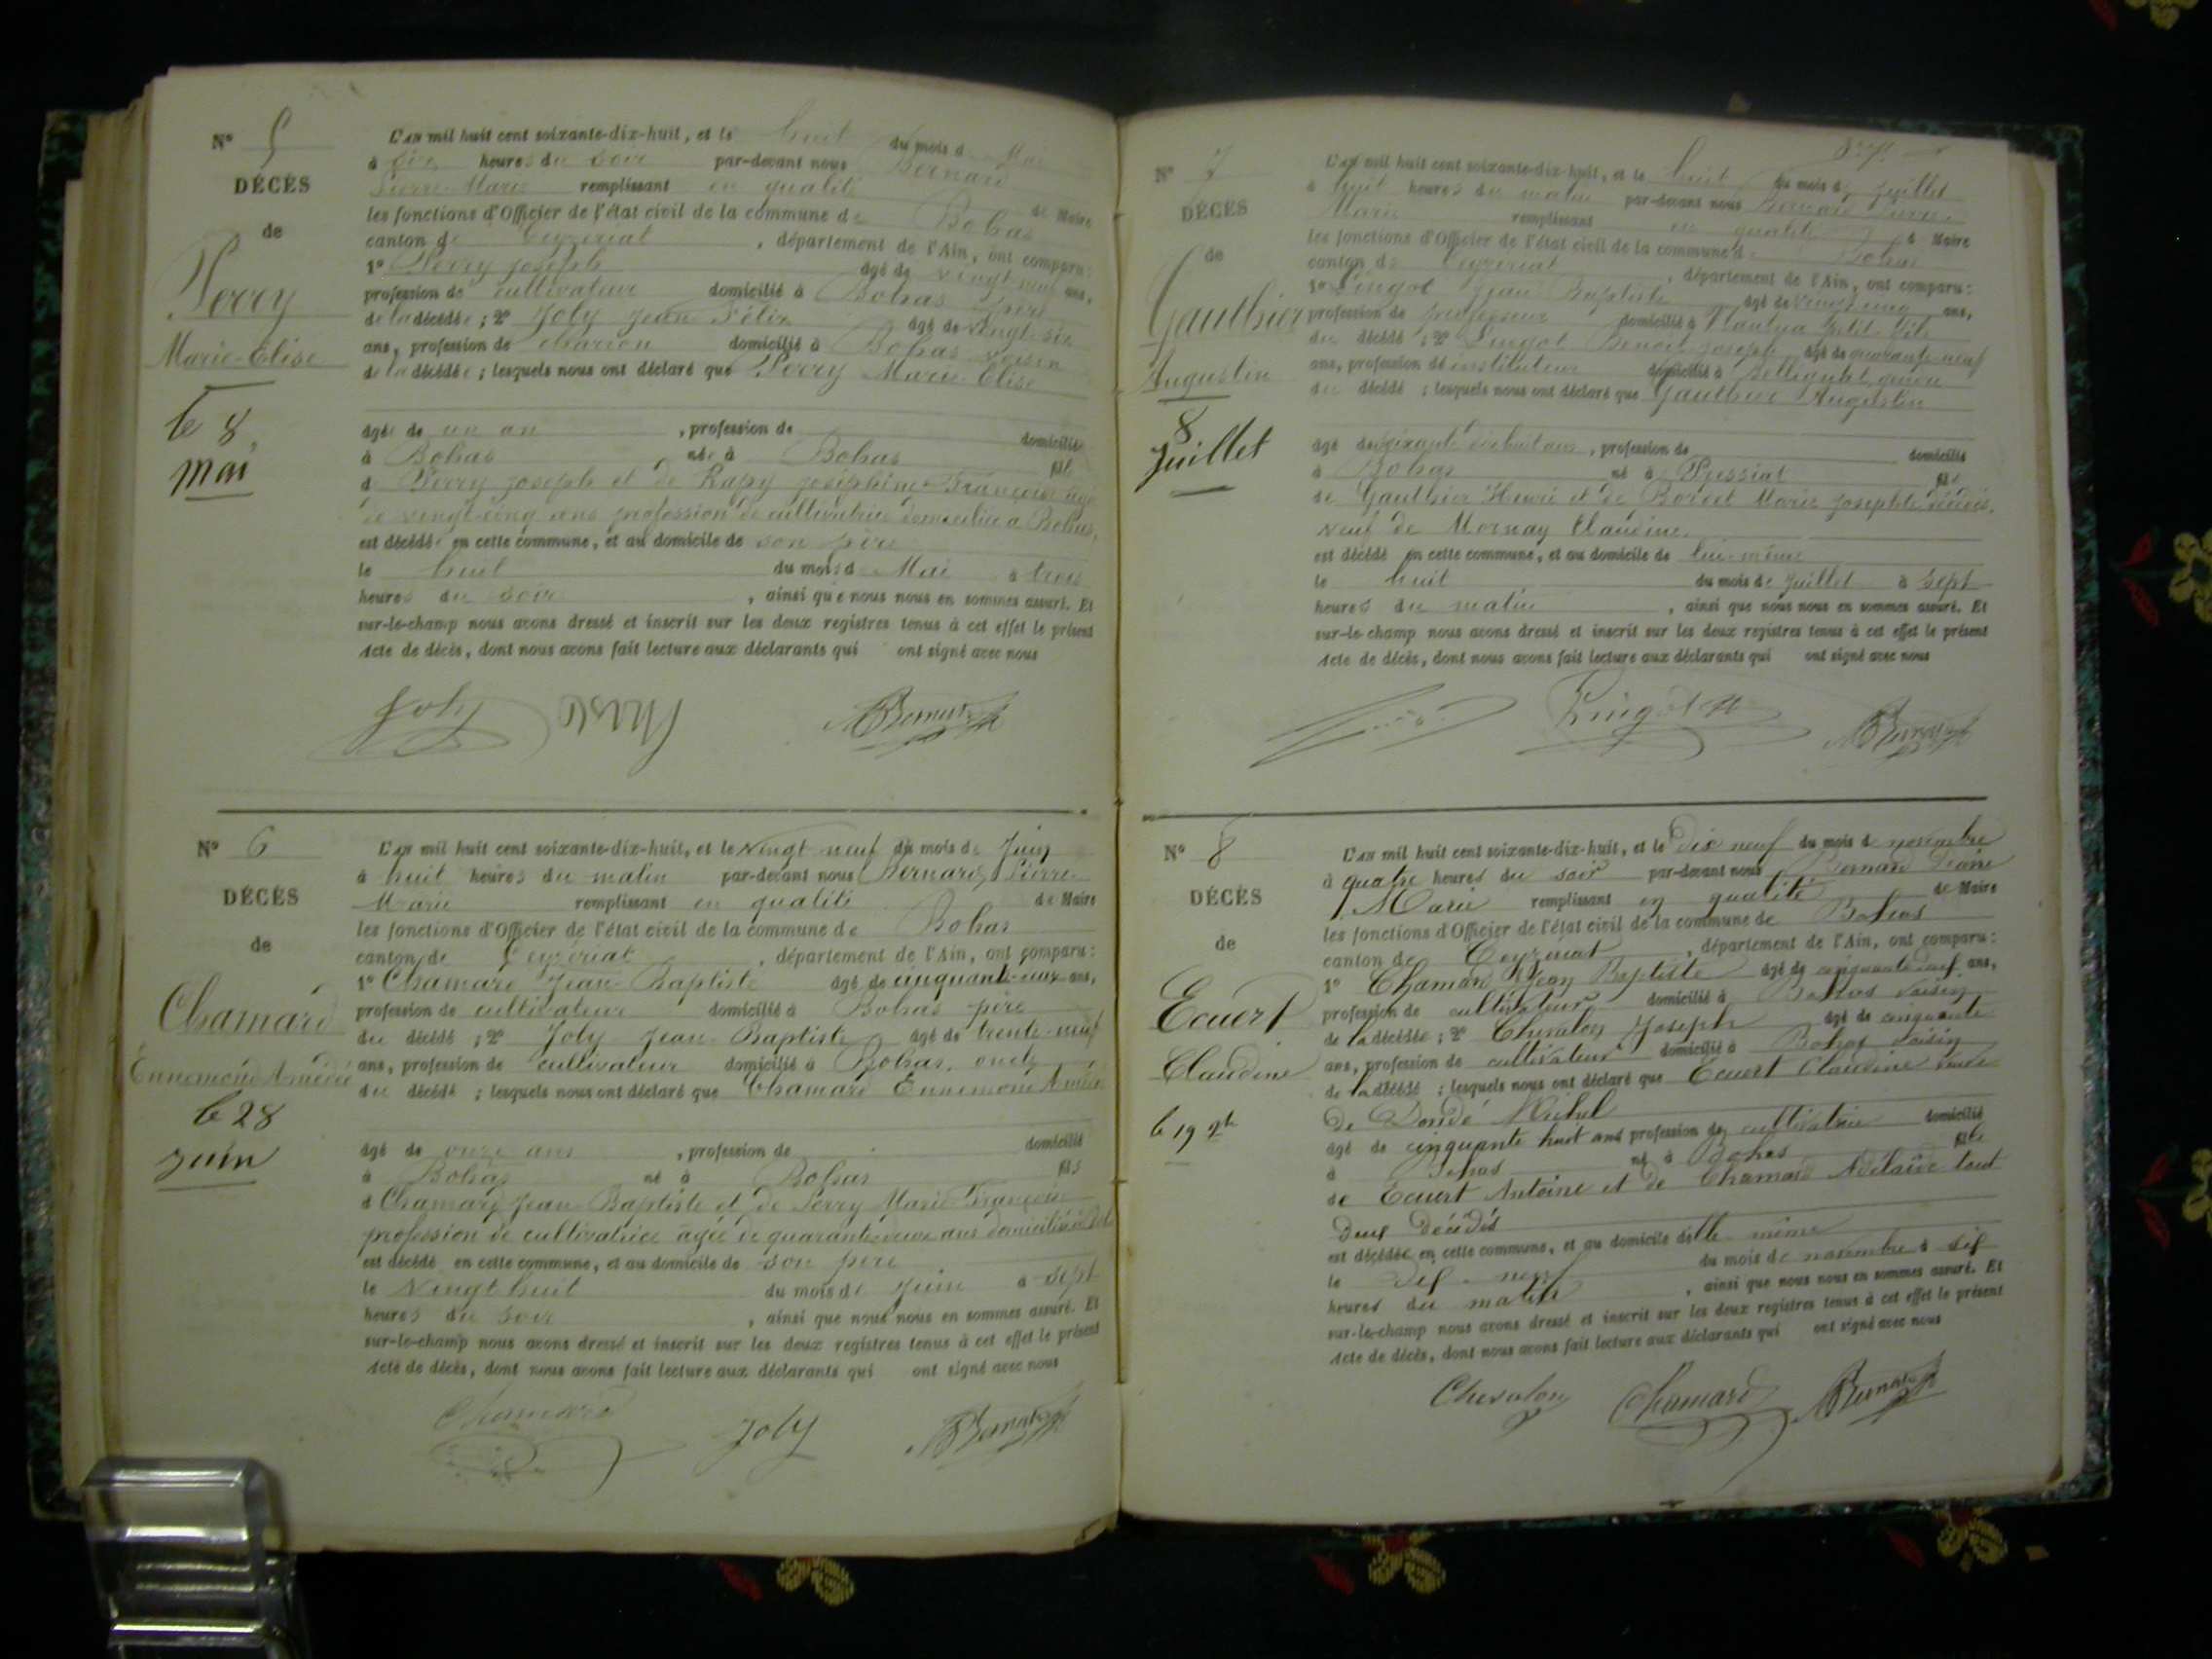 N° 5
DÉCÈS
de
Perry
Marie-Elise
le 8
mai
L'AN mil huit cent soixante-dix-huit, et le huit du mois d Mai
à six heures du soir par-devant nous Bernard
Pierre-Marie remplissant en qualité de Maire
les fonctions d'Officier de l'état civil de la commune de Bohas
canton de Ceyzériat, département de l'Ain, ont comparu:
1° Perry joseph âgé de vingt-neuf ans,
profession de cultivateur domicilié à Bohas père
de la décédée; 2° Joly Jean Félix âgé de vingt-six
ans, profession de charron domicilié à Bohas voisin
de la décédée; lesquels nous ont déclaré que Perry Marie-Elise
âgée de un an, profession de domicilié
à Bohas née à Bohas fil
d Perry joseph et de Rapy joséphine-Françoise âgée
de vingt-cinq ans profession de cultivatrice domiciliée à Bohas,
est décédée en cette commune, et au domicile de son père
le huit du mois d Mai à trois
heures du soir, ainsi que nous nous en sommes assuré. Et
sur-le-champ nous avons dressé et inscrit sur les deux registres tenus à cet effet le présent
Acte de décès, dont nous avons fait lecture aux déclarants qui ont signé avec nous
Joly Bernard
N° 6
DÉCÈS
de
Chamard
Ennemond Amédée
le 28
juin
L'AN mil huit cent soixante-dix-huit, et le vingt neuf du mois de Juin
à huit heures du matin par-devant nous Bernard, Pierre-
Marie remplissant en qualité de Maire
les fonctions d'Officier de l'état civil de la commune de Bohas
canton de Ceyzériat, département de l'Ain, ont comparu:
1° Chamard Jean-Baptiste âgé de cinquante-deux ans,
profession de cultivateur domicilié à Bohas père
du décédé; 2° Joly Jean-Baptiste âgé de trente-neuf
ans, profession de cultivateur domicilié à Bohas, oncle
du décédé; lesquels nous ont déclaré que Chamard Ennemond Amédée
âgé de onze ans, profession de domicilié
à Bohas né à Bohas fils
d Chamard Jean-Baptiste et de Perry Marie-Françoise
profession de cultivatrice âgée de quarante-deux ans domiciliée à
est décédé en cette commune, et au domicile de son père
le Vingt huit du mois de juin à sept
heures du soir, ainsi que nous nous en sommes assuré. Et
sur-le-champ nous avons dressé et inscrit sur les deux registres tenus à cet effet le présent
Acte de décès, dont nous avons fait lecture aux déclarants qui ont signé avec nous
Chamard Joly Bernard
N° 7
DÉCÈS
de
Gauthier
Augustin
8
Juillet
L'AN mil huit cent soixante-dix-huit, et le huit du mois de juillet
à huit heures du matin par-devant nous Bernard Pierre-
Marie remplissant en qualité d Maire
les fonctions d'Officier de l'état civil de la commune d Bohas
canton de Ceyzériat, département de l'Ain, ont comparu:
1° Pingot Jean Baptiste âgé de vingt-cinq ans,
profession de professeur domicilié à Nantua petit-fils
du décédé; 2° Pingot Benoit joseph âgé de quarante-neuf
ans, profession de instituteur domicilié à gendre
du décédé; lesquels nous ont déclaré que Gauthier Augustin
âgé de soixante dix huit ans, profession de domicilié
à Bohas né à Pressiat fils
de Gauthier Henri et de Marie Josephte décédés,
veuf de Mornay Claudine
est décédé en cette commune, et au domicile de lui-même
le huit du mois de juillet à sept
heures du matin, ainsi que nous nous en sommes assuré. Et
sur-le-champ nous avons dressé et inscrit sur les deux registres tenus à cet effet le présent
Acte de décès, dont nous avons fait lecture aux déclarants qui ont signé avec nous
Pingot Bernard
N° 8
DÉCÈS
de
Ecuert
Claudine
le 19 9bre
L'AN mil huit cent soixante-dix-huit, et le dix neuf du mois d novembre
à quatre heures du soir par-devant nous Bernard Pierre
Marie remplissant en qualité de Maire
les fonctions d'Officier de l'état civil de la commune de Bohas
canton de Ceyzeriat, département de l'Ain, ont comparu:
1° Chamard Jean Baptiste âgé de cinquante deux ans,
profession de cultivateur domicilié à Bohas voisin
de la décédée; 2° Chevalon Joseph âgé de cinquante
ans, profession de cultivateur domicilié à Bohas voisin
de la décédé; lesquels nous ont déclaré que Ecuert Claudine veuve
de Dondé Michel
âgé de cinquante huit ans profession de cultivatrice domicilié
à Bohas né à Bohas fille
de Ecuert Antoine et de Chamard Adélaïde tout
deux décédés
est décédée en cette commune, et au domicile d'elle-même
le dix-neuf du mois de novembre à six
heures du matin, ainsi que nous nous en sommes assuré. Et
sur-le-champ nous avons dressé et inscrit sur les deux registres tenus à cet effet le présent
Acte de décès, dont nous avons fait lecture aux déclarants qui ont signé avec nous
Chevalon Chamard Bernard